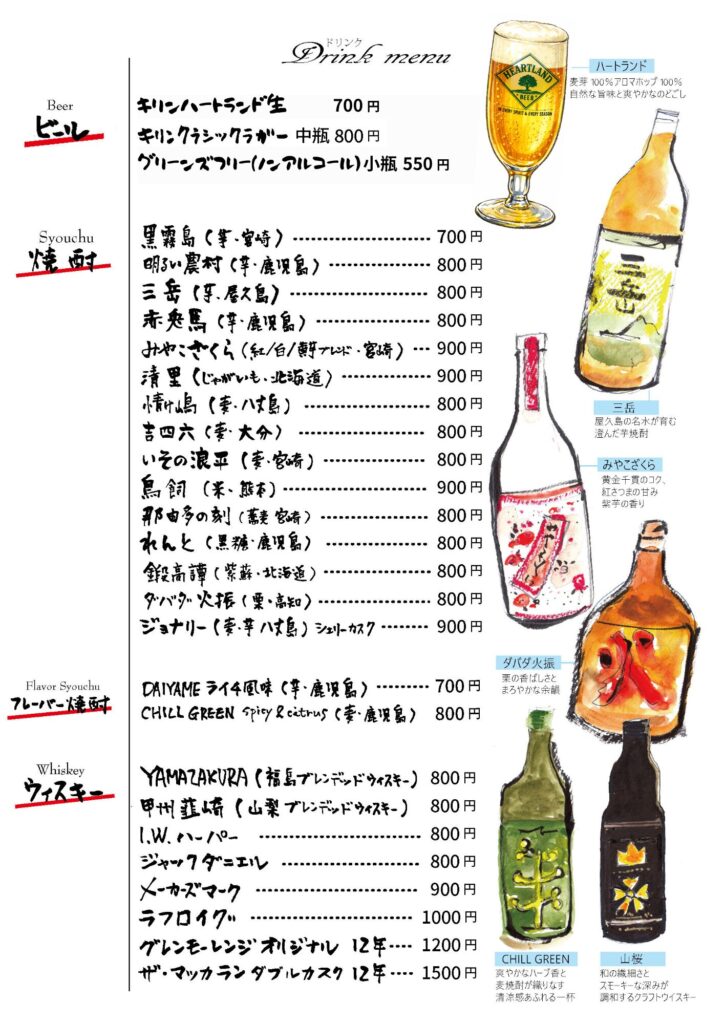 ドリンク
Drink menu
Beer
ビール
キリンハートランド生 700円
キリンクラシックラガー 中瓶 800円
グリーンズフリー(ノンアルコール)小瓶 550円
HEARTLAND
BEER
ハートランド
麦芽100%アロマホップ100%
自然な旨味と爽やかなのどごし
Syouchu
焼酎
黒霧島(芋・宮崎) 700円
明るい農村(芋・鹿児島) 800円
三岳(芋、屋久島) 800円
赤兎馬(芋・鹿児島) 800円
みやこざくら(紅/白/黄芋ブレンド・宮崎) 900円
清里(じゃがいも・北海道) 900円
情け嶋(麦・八丈島) 800円
吉四六(麦・大分) 800円
いその浪平(麦・宮崎) 800円
鳥飼(米・熊本) 900円
那由多の刻(蕎麦 宮崎) 800円
れんと(黒糖・鹿児島) 800円
鍛高譚(紫蘇・北海道) 800円
ダバダ火振(栗・高知) 800円
ジョナリー(麦・芋 八丈島)シェリーカスク 900円
三岳
三岳
屋久島の名水が育む
澄んだ芋焼酎
みやこざくら
黄金千貫のコク、
紅さつまの甘み
紫芋の香り
火
ダバダ火振
栗の香ばしさと
まろやかな余韻
Flavor Syouchu
フレーバー焼酎
DAIYAME ライチ風味(芋・鹿児島) 700円
CHILL GREEN spicy & citrus(麦・鹿児島) 800円
Whiskey
ウィスキー
YAMAZAKURA(福島ブレンデッドウィスキー) 800円
甲州韮崎(山梨ブレンデッドウィスキー) 800円
I.W.ハーパー 800円
ジャックダニエル 800円
メーカーズマーク 900円
ラフロイグ 1000円
グレンモーレンジ オリジナル 12年 1200円
ザ・マッカラン ダブルカスク 12年 1500円
CHILL GREEN
爽やかなハーブ香と
麦焼酎が織りなす
清涼感あふれる一杯
山桜
和の繊細さと
スモーキーな深みが
調和するクラフトウイスキー